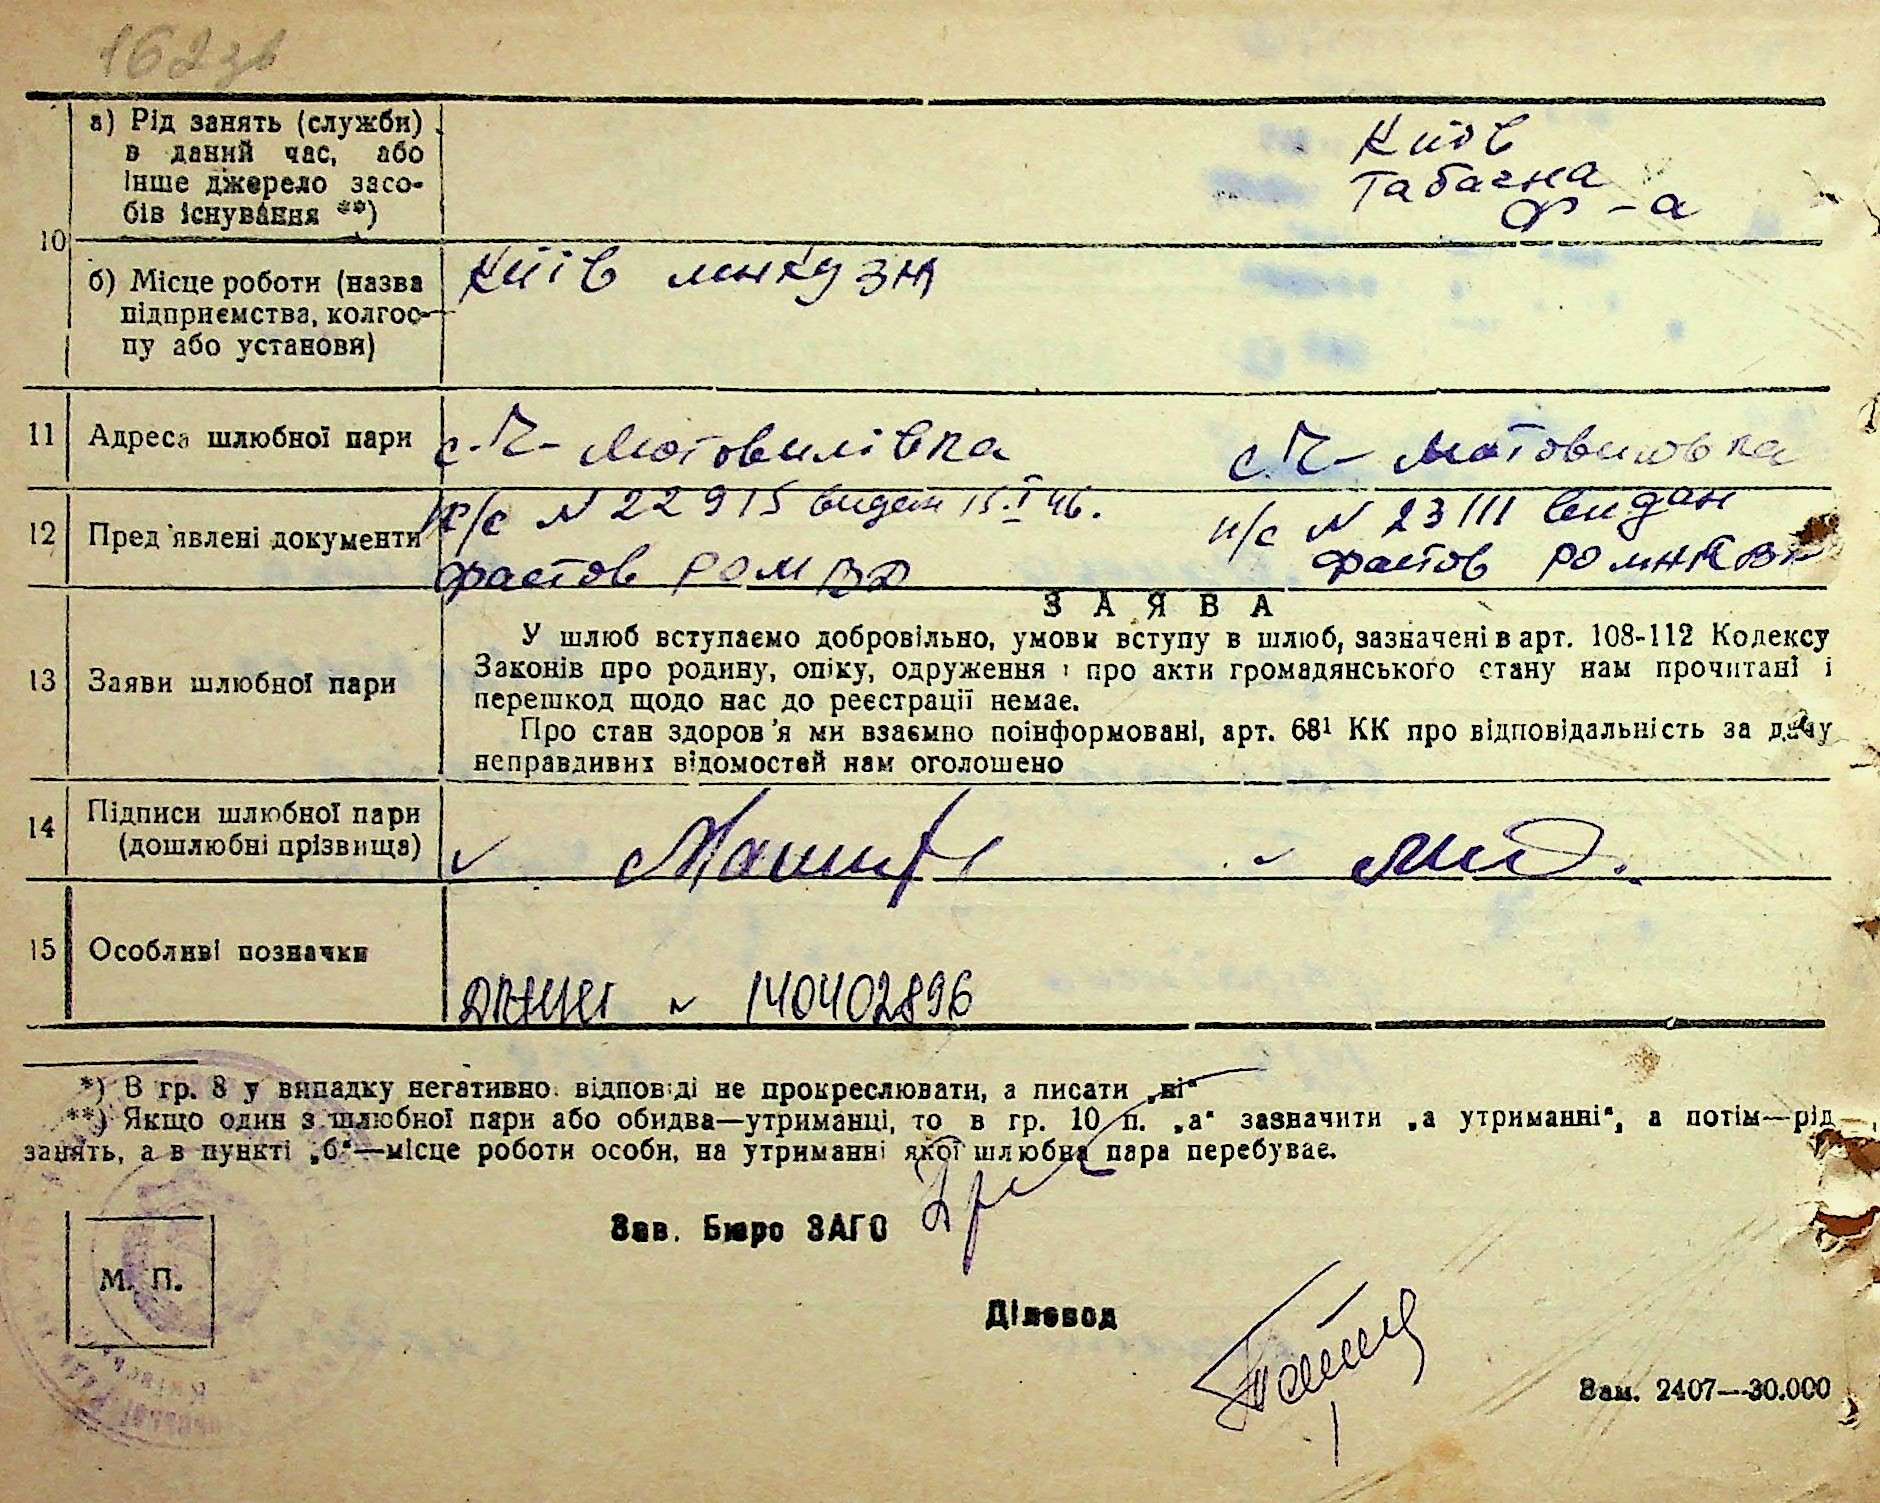 162зв
а) Рід занять (служби)
в даний час, або
інше джерело засо-
бів існування **)
Київ
Табачна
ф-а
10
б) Місце роботи (назва
підприємства, колгос-
пу або установи)
Київ
11 Адреса шлюбної пари с. Мотовилівка с. Мотовиловка
12 Пред'явлені документи п/с N 22915 видан 15.I 46. п/с N 23111 видан
Фастов РОМВД Фастов РОМНКВД
ЗАЯВА
13 Заяви шлюбної пари
У шлюб вступаємо добровільно, умови вступу в шлюб, зазначені в арт. 108-112 Кодексу
Законів про родину, опіку, одруження і про акти громадянського стану нам прочитані і
перешкод щодо нас до реєстрації немає.
Про стан здоров'я ми взаємно поінформовані, арт. 68¹ КК про відповідальність за дачу
неправдивих відомостей нам оголошено
14 Підписи шлюбної пари
(дошлюбні прізвища)
15 Особливі позначки
140402896
*) В гр. 8 у випадку негативно. відповіді не прокреслювати, а писати „ні“
**) Якщо один з шлюбної пари або обидва—утриманці, то в гр. 10 п. „а“ зазначити „а утриманні“, а потім—рід
занять, а в пункті „б“—місце роботи особи, на утриманні якої шлюбна пара перебуває.
Зав. Бюро ЗАГС
М. П.
Діловод
Зам. 2407—30.000